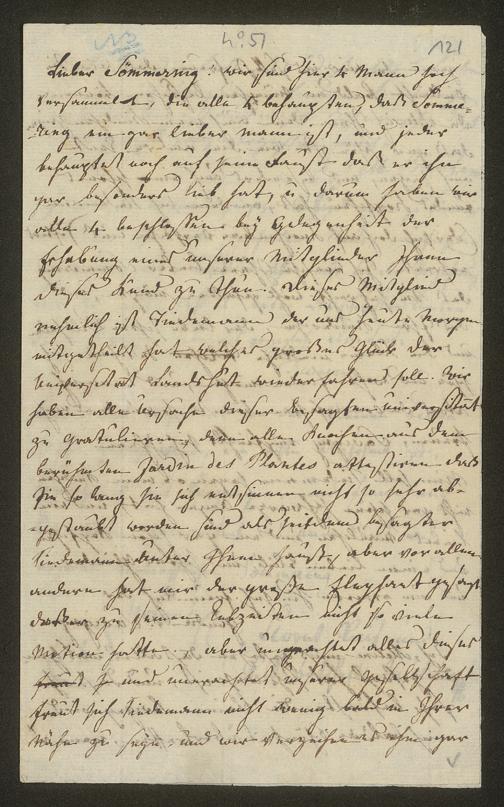 No. 51
121
Lieber Sömmering! wir sind hier 4 Mann hoch
versammelt, die alle 4 behaupten, daß Sömme-
ring ein gar lieber Mann ist, und jeder
behauptet noch auf seine Faust daß er ihn
gar besonders lieb hat, u. darum haben wir
alle 4 beschlossen bey Gelegenheit der
Erhebung eines unserer Mitglieder Ihnen
dieses kund zu thun. Dieses Mitglied
nehmlich ist Tiedemann der uns heute Morgen
mitgetheilt hat welches großes Glück der
Universitæt Landshut wiederfahren soll. Wir
haben alle Ursache dieser besagten Universität
zu gratulieren, denn alle Knochen aus dem
berühmten Jardin des Plantes attestiren daß
sie so lang sie sich entsinnen nicht so sehr ab-
gestaubt worden sind als seitdem besagter
Tiedemann unter Ihnen haust, aber vor allen
andern hat mir der große Elephant gesagt
daß er zu seinen Lebzeiten nicht so viele
Motion hatte. aber ungeachtet alles dieses
und unerachtet unserer Gesellschaft
freut sich Tiedemann nicht wenig bald in Ihrer
Nähe zu seyn und wir verzeihen es ihm gar